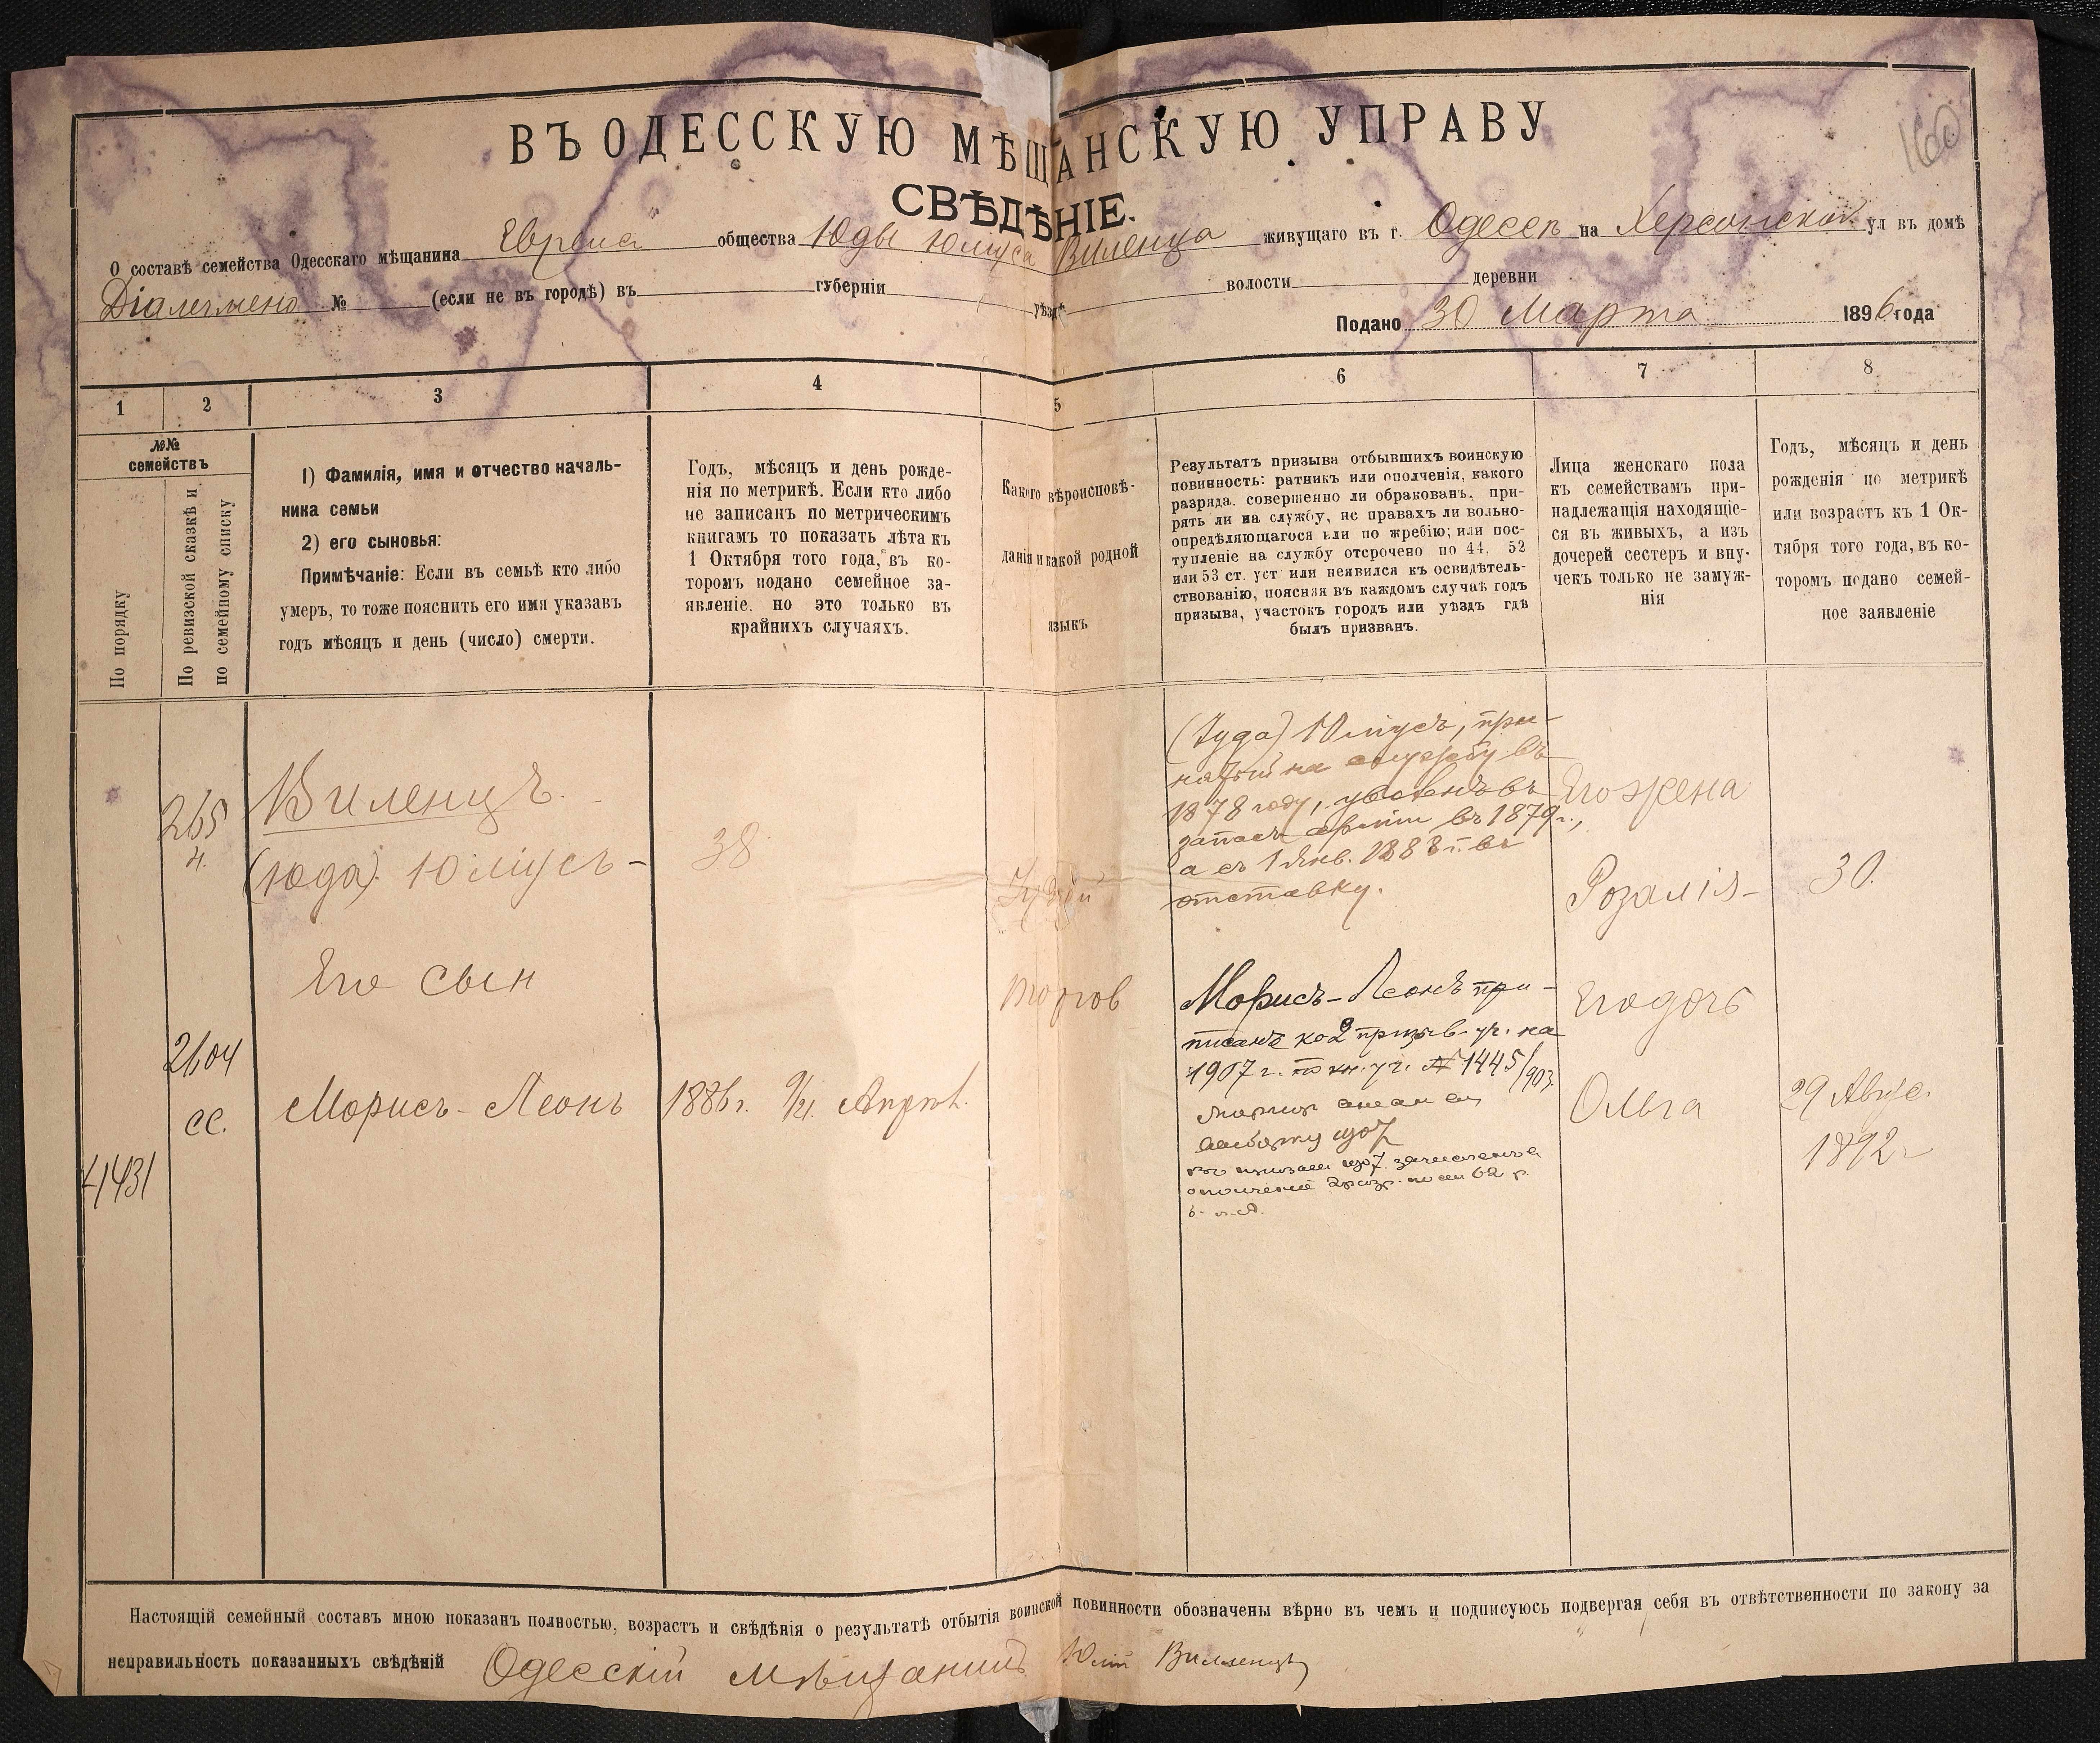 160
ВЪ ОДЕССКУЮ МѢЩАНСКУЮ УПРАВУ
СВѢДѢНІЕ.
О составѣ семейства Одесскаго мѣщанина Еврея общества Юды Юлиуса Виленца живущаго въ г. Одессѣ на Херсонской ул въ домѣ
№ (если не въ городѣ) въ губерніи уѣздѣ волости деревни
Подано 30 Марта 1896 года
1 2 3 4 5 6 7 8
№№
семействъ
По порядку
По ревизской сказкѣ и
по семейному списку
1) Фамилія, имя и отчество началь-
ника семьи
2) его сыновья:
Примѣчаніе: Если въ семьѣ кто либо
умеръ, то тоже пояснить его имя указавъ
годъ мѣсяцъ и день (число) смерти.
Годъ, мѣсяцъ и день рожде-
нія по метрикѣ. Если кто либо
не записанъ по метрическимъ
книгамъ то показать лѣта къ
1 Октября того года, въ ко-
торомъ подано семейное за-
явленіе. но это только въ
крайнихъ случаяхъ.
Какого вѣроисповѣ-
данія и какой родной
языкъ
Результатъ призыва отбывшихъ воинскую
повинность: ратникъ или ополченія, какого
разряда. совершенно ли обракованъ, при-
рятъ ли на службу, нс правахъ ли вольно-
опредѣляющагося или по жребію; или пос-
тупленіе на службу отсрочено по 44, 52
или 53 ст. уст или неявился къ освидѣтель-
ствованію, поясняя въ каждомъ случаѣ годъ
призыва, участокъ городъ или уѣздъ гдѣ
былъ призванъ.
Лица женскаго пола
къ семействамъ при-
надлежащія находящіе-
ся въ живыхъ, а изъ
дочерей сестеръ и вну-
чекъ только не замуж-
нія
Годъ, мѣсяцъ и день
рожденія по метрикѣ
или возрастъ къ 1 Ок-
тября того года, въ ко-
торомъ подано семей-
ное заявленіе
265
н.
Виленцъ.
(Юда) Юліусъ -
38
Іудей
(Іуда) Юліусъ, при-
нятый на службу въ
1878 году, уволенъ въ
запасъ арміи въ 1879 г.,
а съ 1 Янв. 1888 г. въ
отставку.
Его жена
Розалія -
30.
Его сын
2604
сс.
Морисъ - Леонъ
1886 г. 9/21 Апрѣл.
4431
Морисъ - Леонъ при-
писанъ ко 2 призыв. уч. на
1907 г. по кн. уч. № 1445/903.
Его дочь
Ольга
29 Авгус.
1892 г
Настоящій семейный составъ мною показанъ полностью, возрастъ и свѣдѣнія о результатѣ отбытія воинской повинности обозначены вѣрно въ чемъ и подписуюсь подвергая себя въ отвѣтственности по закону за
неправильность показанныхъ свѣдѣній Одесскій мѣщанинъ Юлій Виленцъ